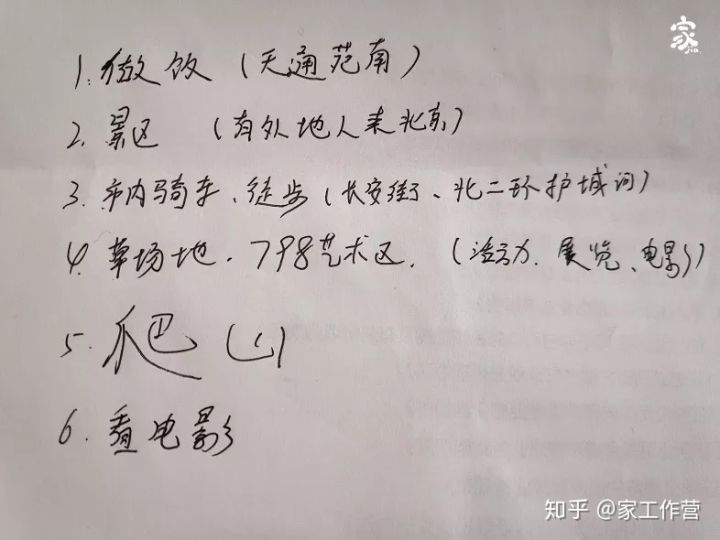 家
1. 做饭 (天通苑南)
2. 景区 (有外地人来北京)
3. 市内骑车、徒步 (长安街、北二环护城河)
4. 草场地、798艺术区. (活动、展览、电影)
5. 爬山
6. 看电影
知乎 @家工作营